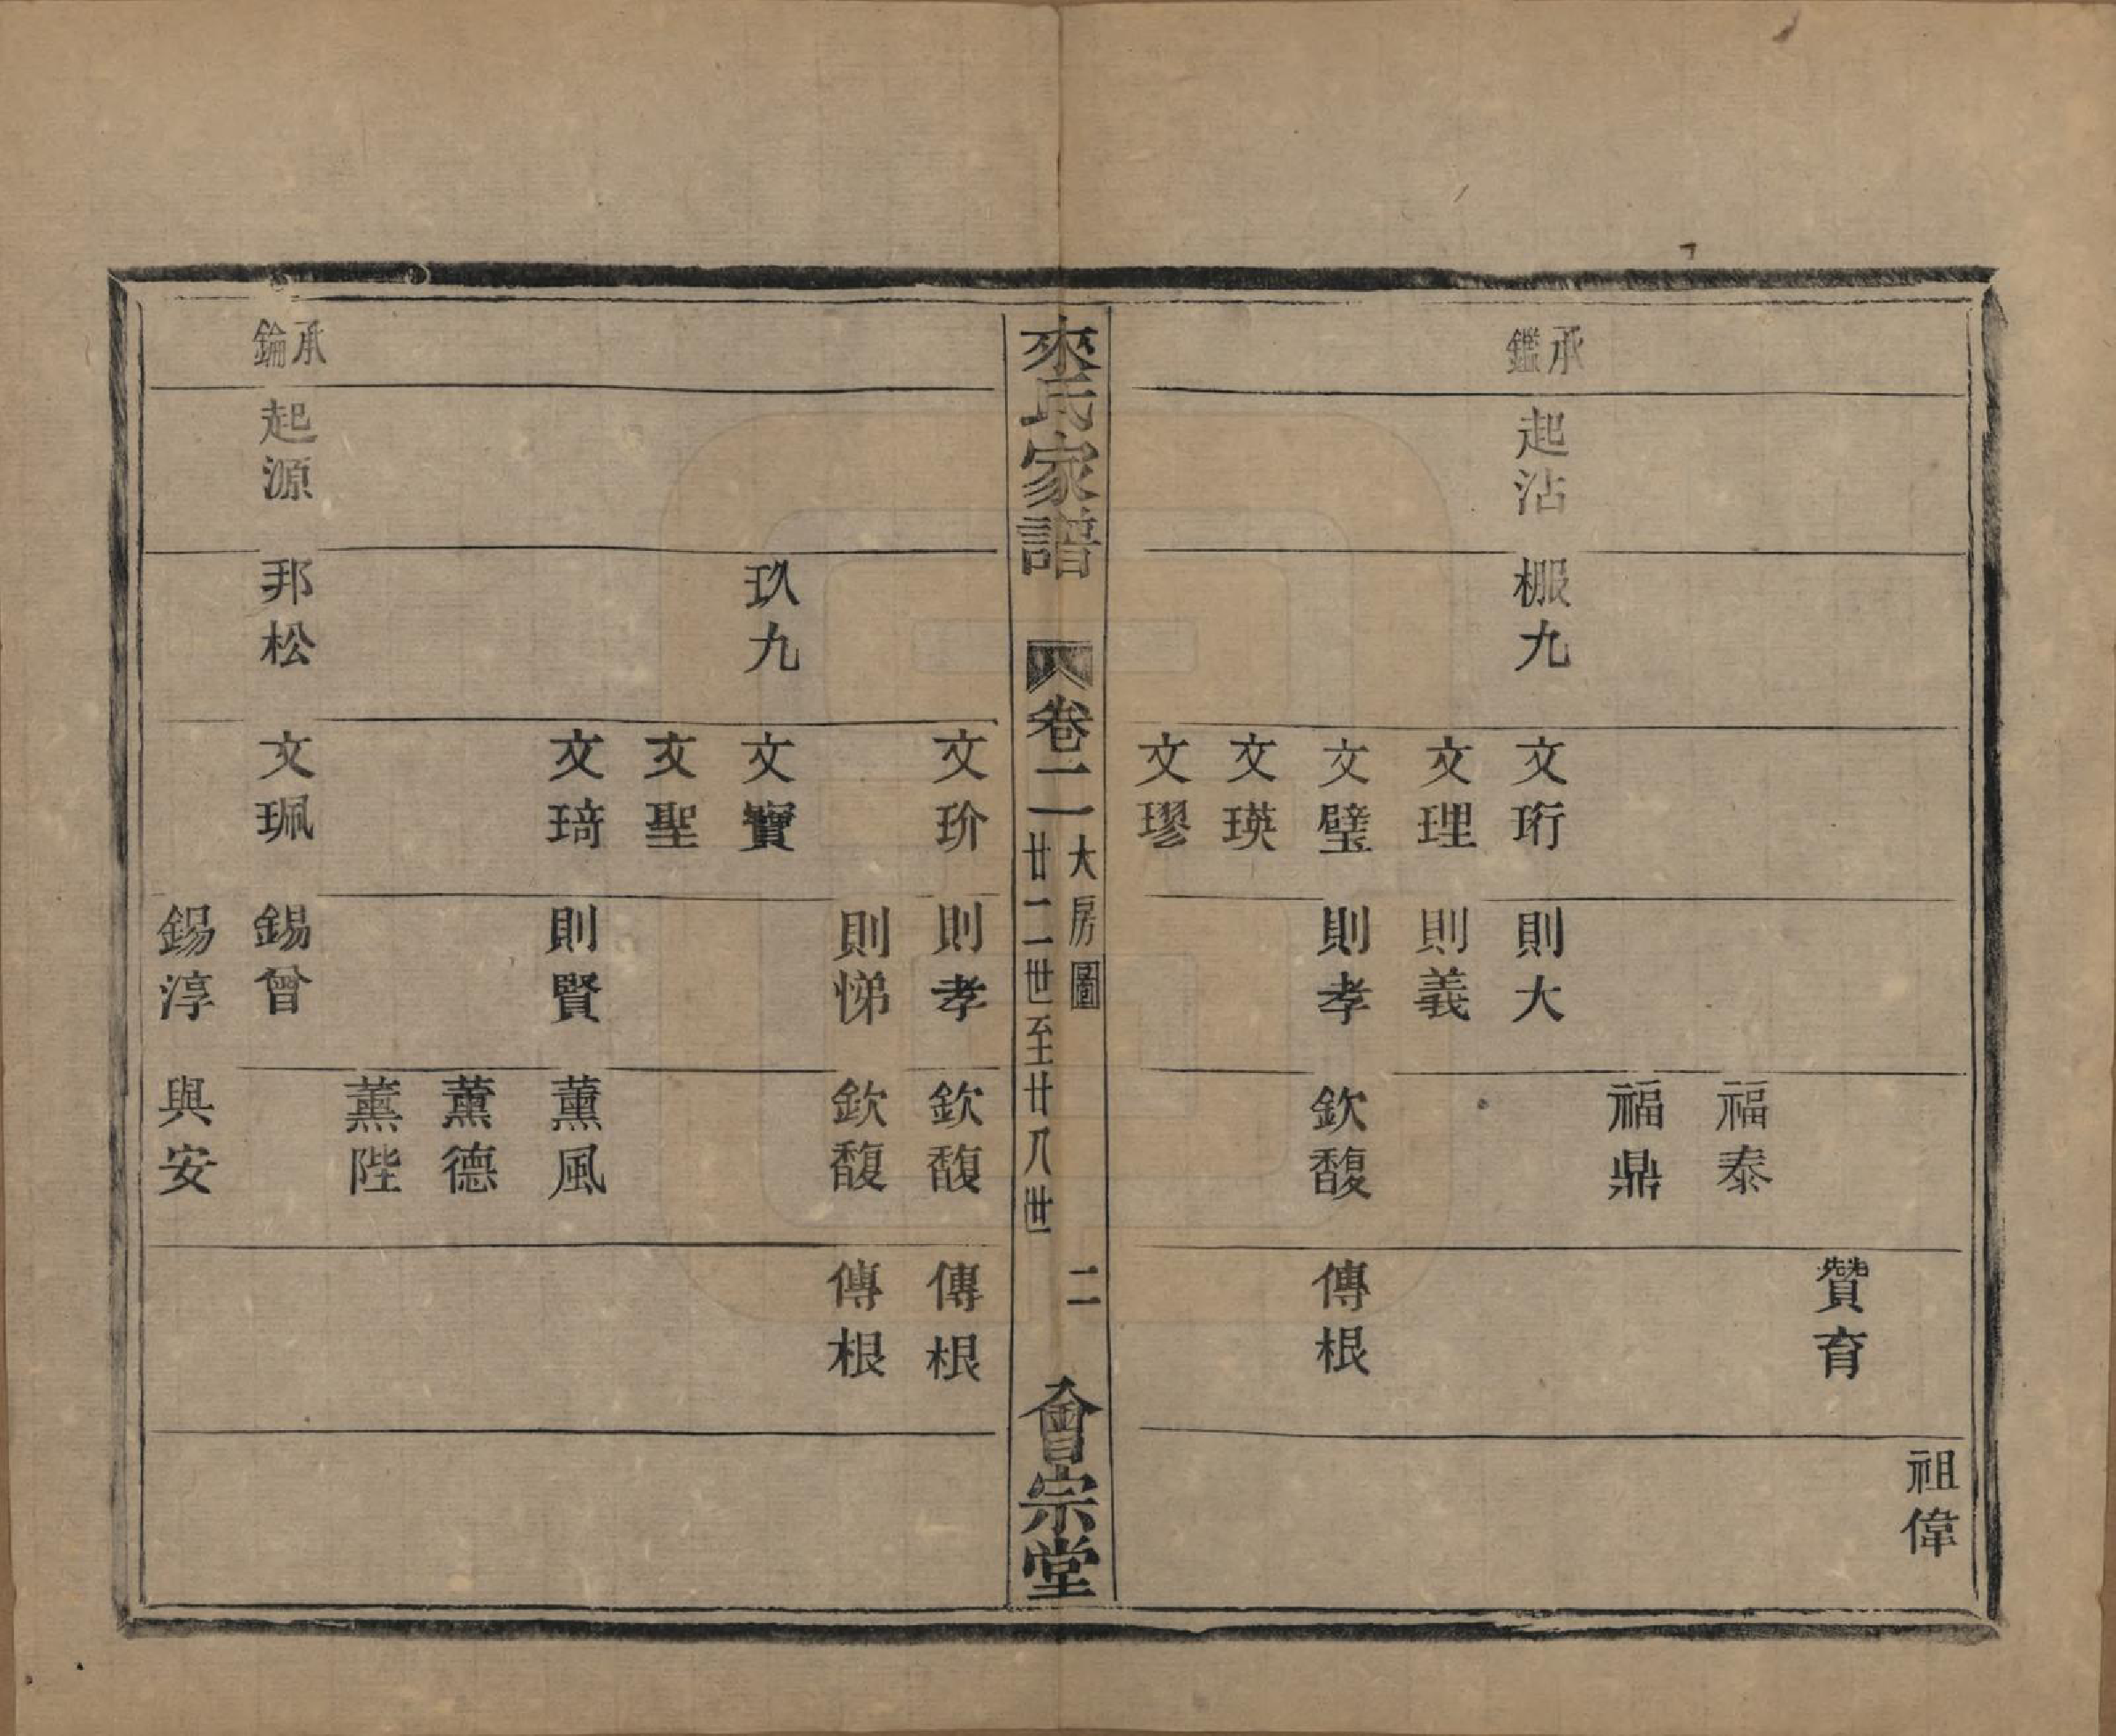 祖偉
贊育
福泰
福鼎
承鑑
起沾
棴九
文珩
則大
文理
則義
文璧
則孝
欽馥
傳根
文瑛
文璆
來氏家譜
卷二
大房圖
廿二世至廿八世
二
會宗堂
文玠
則孝
欽馥
傳根
則悌
欽馥
傳根
玖九
文寶
文聖
文琦
則賢
薰風
薰德
薰陛
承錀
起源
邦松
文珮
錫曾
錫淳
與安